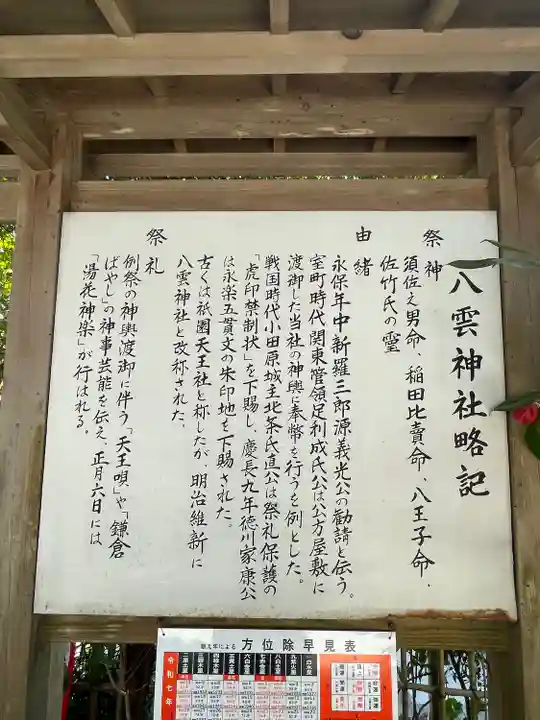 八雲神社略記
祭神
須佐之男命、稲田比賣命、八王子命、
佐竹氏の霊
由緒
永保年中新羅三郎源義光公の勧請と伝う。
室町時代関東管領足利成氏公は公方屋敷に
渡御した当社の神輿に奉幣を行うを例とした。
戦国時代小田原城主北条氏直公は祭礼保護の
「虎印禁制状」を下賜し、慶長九年徳川家康公
は永楽五貫文の朱印地を下賜された。
古くは祇園天王社と称したが、明治維新に
八雲神社と改称された。
祭礼
例祭の神輿渡御に伴う「天王唄」や「鎌倉
ばやし」の神事芸能を伝え、正月六日には
「湯花神楽」が行はれる。
数え年による 方位除早見表
令和七年